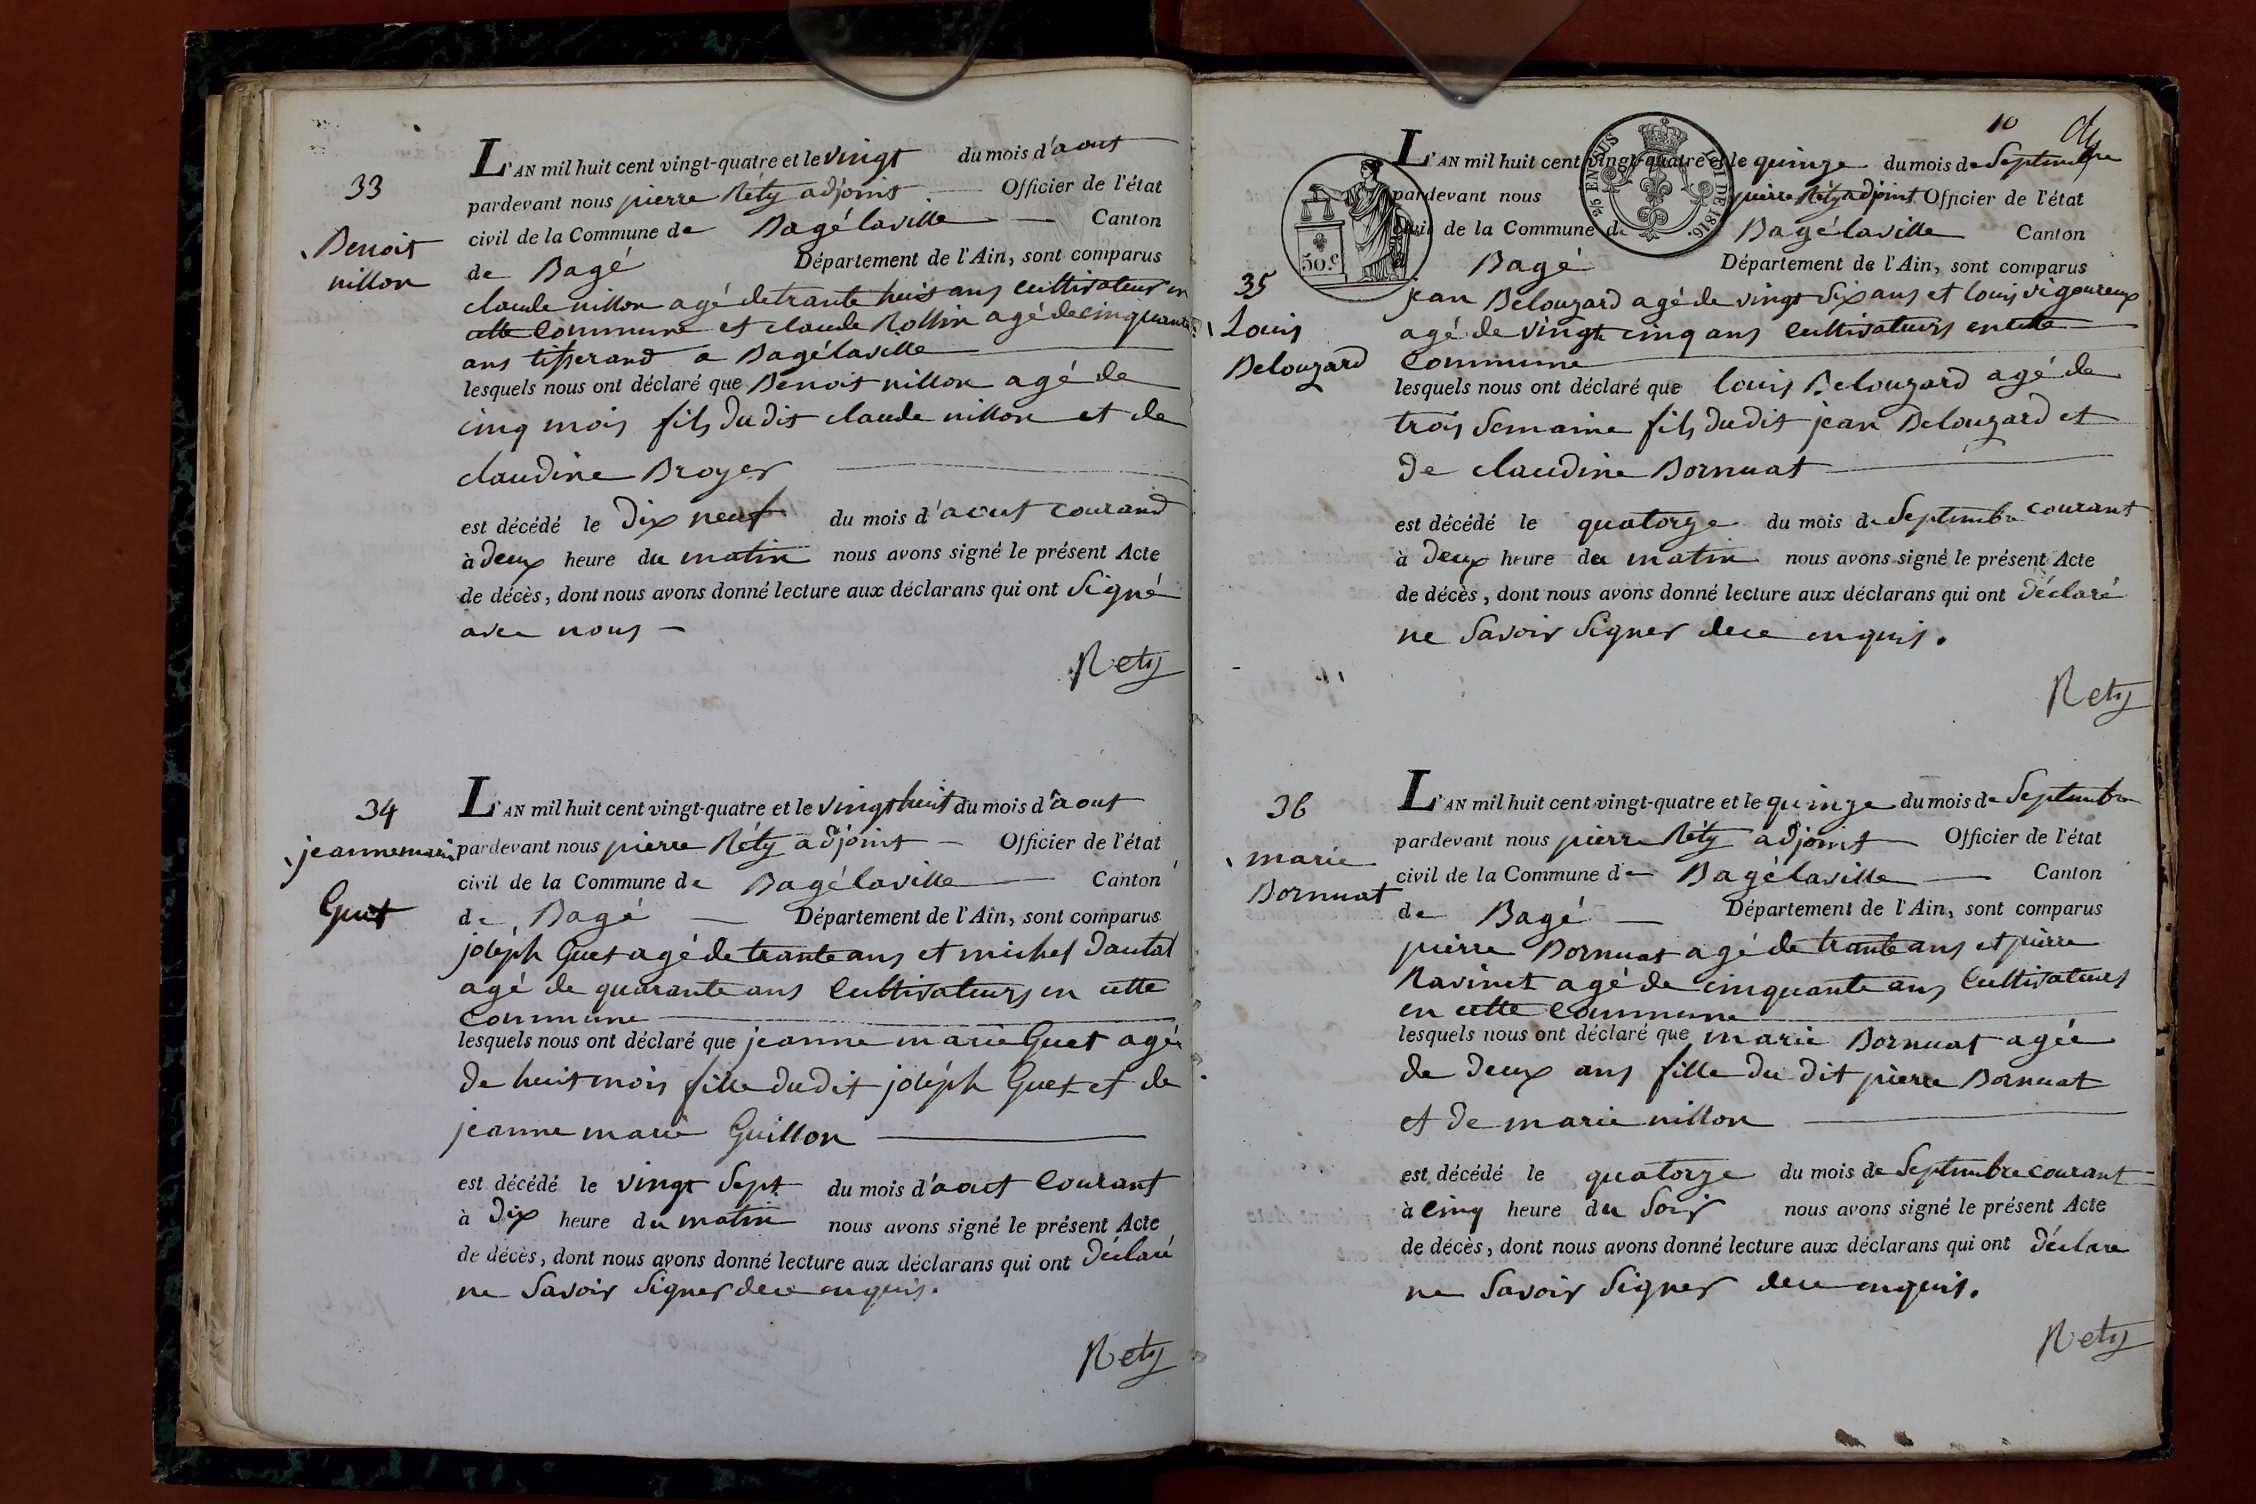 33
Benoit
nillon
L'AN mil huit cent vingt-quatre et le vingt du mois d'aout
pardevant nous pierre Réty adjoint Officier de l'état
civil de la Commune de Bagélaville Canton
de Bagé Département de l'Ain, sont comparus
claude nillon agé de trante huit ans cultivateur en
cette commune et claude Rollin agé de cinquante
ans tisserand a Bagélaville
lesquels nous ont déclaré que Benoit nillon agé de
cinq mois fils du dit claude nillon et de
claudine Broyer
est décédé le dix neuf du mois d'aout courand
à deux heure du matin nous avons signé le présent Acte
de décès, dont nous avons donné lecture aux déclarans qui ont signé
avec nous
Rety
34
jeanne marie
Guet
L'AN mil huit cent vingt-quatre et le vingt huit du mois d'aout
pardevant nous pierre Réty adjoint Officier de l'état
civil de la Commune de Bagélaville Canton
de Bagé Département de l'Ain, sont comparus
joséph Guet agé de trante ans et michel dautal
agé de quarante ans cultivateurs en cette
commune
lesquels nous ont déclaré que jeanne marie Guet agée
de huit mois fille du dit joséph Guet et de
jeanne marie Guillon
est décédé le vingt sept du mois d'aout courant
à dix heure du matin nous avons signé le présent Acte
de décès, dont nous avons donné lecture aux déclarans qui ont déclaré
ne savoir signer de ce enquis.
Rety
10
35
Louis
Belouzard
50 c.
25 EN SUS
LOI DE 1816.
L'AN mil huit cent vingt-quatre et le quinze du mois de Septembre
pardevant nous pierre Réty adjoint Officier de l'état
civil de la Commune de Bagélaville Canton
de Bagé Département de l'Ain, sont comparus
jean Belouzard agé de vingt six ans et louis vigoureux
agé de vingt cinq ans cultivateurs en cette
commune
lesquels nous ont déclaré que louis Belouzard agé de
trois semaine fils du dit jean Belouzard et
de claudine Bornuat
est décédé le quatorze du mois de Septembre courant
à deux heure du matin nous avons signé le présent Acte
de décès, dont nous avons donné lecture aux déclarans qui ont déclaré
ne savoir signer de ce enquis.
Rety
36
marie
Bornuat
L'AN mil huit cent vingt-quatre et le quinze du mois de Septembre
pardevant nous pierre Réty adjoint Officier de l'état
civil de la Commune de Bagélaville Canton
de Bagé Département de l'Ain, sont comparus
pierre Bornuat agé de trante ans et pierre
Ravinet agé de cinquante ans cultivateurs
en cette commune
lesquels nous ont déclaré que marie Bornuat agée
de deux ans fille du dit pierre Bornuat
et de marie nillon
est décédé le quatorze du mois de Septembre courant
à cinq heure du soir nous avons signé le présent Acte
de décès, dont nous avons donné lecture aux déclarans qui ont déclare
ne savoir signer de ce enquis.
Rety